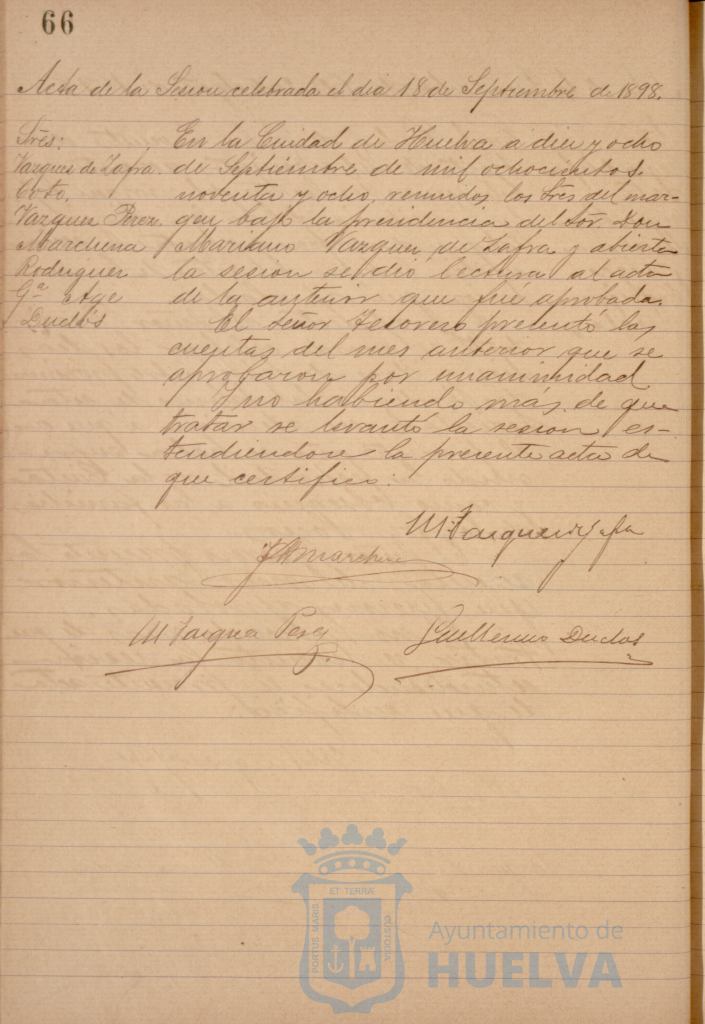 66
Acta de la Sesion celebrada el dia 18 de Septiembre de 1898.
Sres:
Vazquez de Zafra.
Coto,
Vazquez Perez.
Marchena
Rodriguez
Gª
Duclós
En la Ciudad de Huelva a diez y ocho
de Septiembre de mil ochocientos
noventa y ocho, reunidos los Sres del mar-
gen bajo la presidencia del Sör. Don
Mariano Vazquez de Zafra y abierta
la sesion se dió lectura al acta
de la anterior que fué aprobada.
El Señor Tesorero presentó las
cuentas del mes anterior que se
aprobaron por unanimidad
Y no habiendo mas de que
tratar se levantó la sesion es-
tendiendose la presente acta de
que certifico:
M. Vazquez de Zafra
Marchena
M Vazquez Perez
Guillermo Duclos
ET TERRÆ
PORTUS MARIS
CUSTODIA
Ayuntamiento de
HUELVA